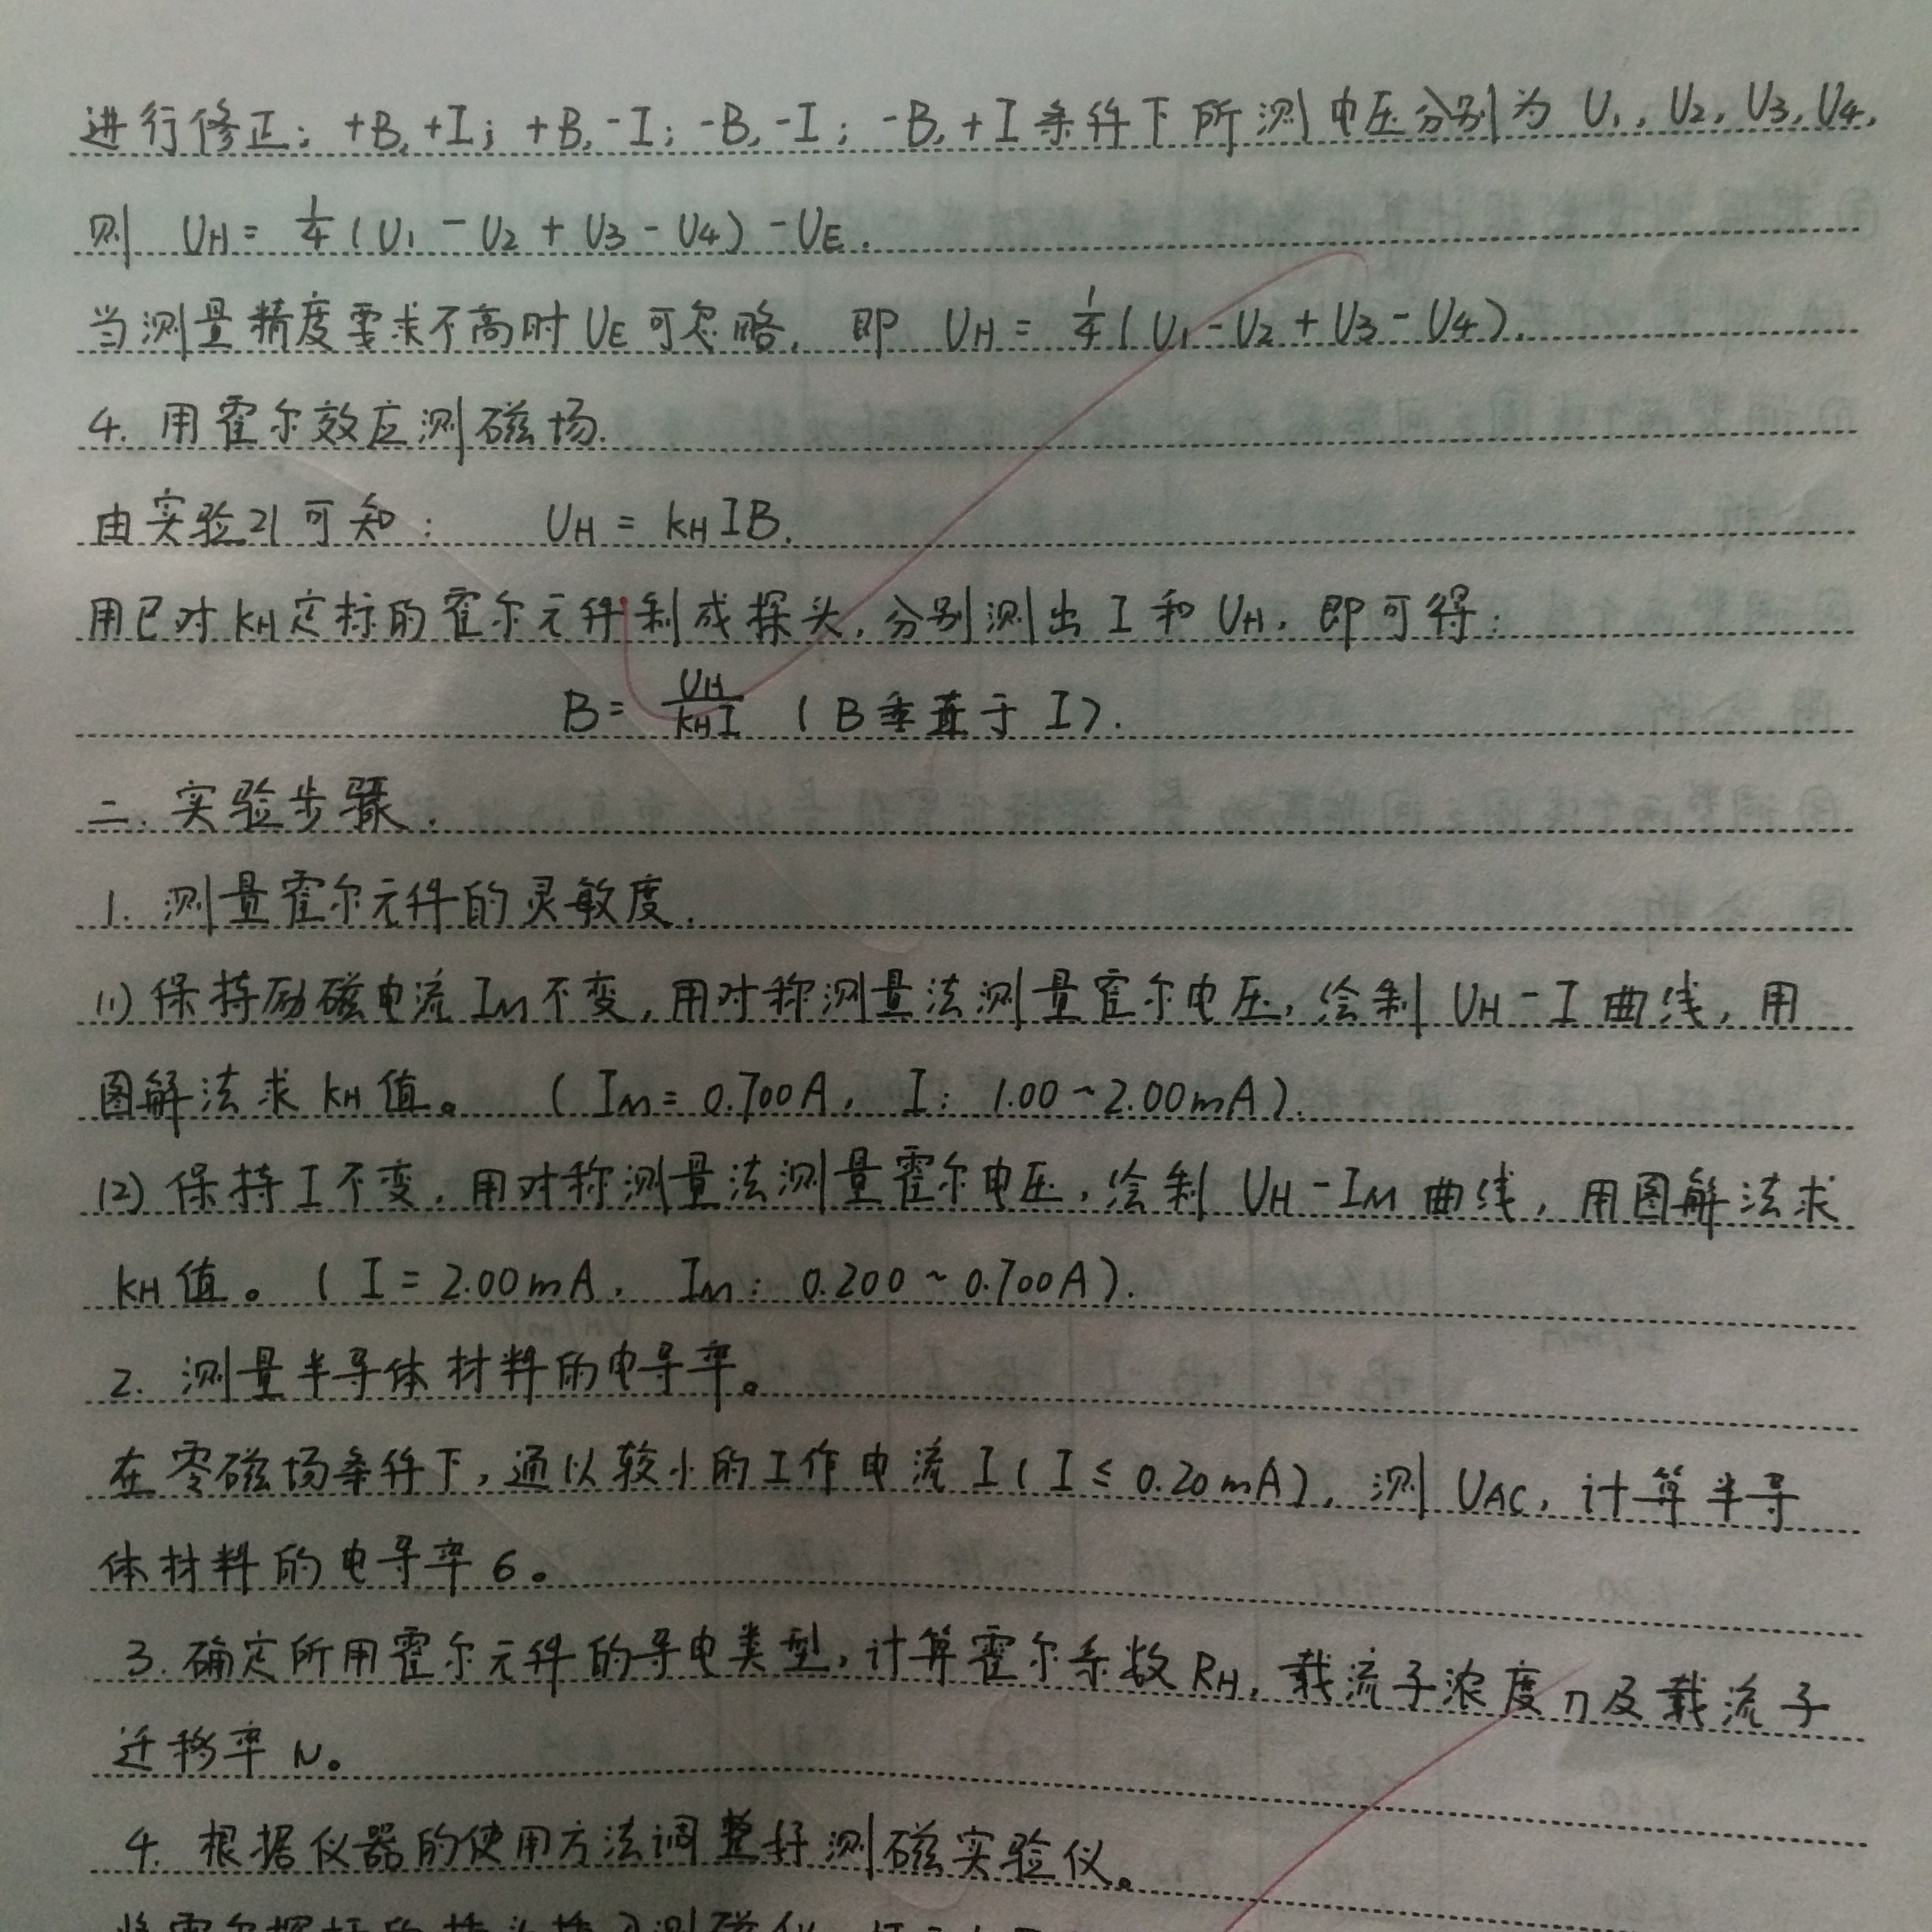 进行修正: +B,+I; +B,-I; -B,-I; -B,+I 条件下所测电压分别为 U₁, U₂, U₃, U₄,
则 U_H = 1/4 (U₁ - U₂ + U₃ - U₄) - U_E.
当测量精度要求不高时 U_E 可忽略, 即 U_H = 1/4 (U₁ - U₂ + U₃ - U₄).
4. 用霍尔效应测磁场.
由实验21可知: U_H = k_H IB.
用已对 k_H 定标的霍尔元件制成探头, 分别测出 I 和 U_H, 即可得:
B = U_H/(k_H I) (B垂直于 I).
二. 实验步骤.
1. 测量霍尔元件的灵敏度.
(1) 保持励磁电流 I_M 不变, 用对称测量法测量霍尔电压, 绘制 U_H - I 曲线, 用
图解法求 k_H 值。 (I_M = 0.700A, I: 1.00~2.00mA).
(2) 保持 I 不变, 用对称测量法测量霍尔电压, 绘制 U_H - I_M 曲线, 用图解法求
k_H 值。 (I = 2.00mA, I_M: 0.200~0.700A).
2. 测量半导体材料的电导率。
在零磁场条件下, 通以较小的工作电流 I (I ≤ 0.20mA), 测 U_AC, 计算半导
体材料的电导率 σ。
3. 确定所用霍尔元件的导电类型, 计算霍尔系数 R_H, 载流子浓度 n 及载流子
迁移率 μ。
4. 根据仪器的使用方法调整好测磁实验仪。